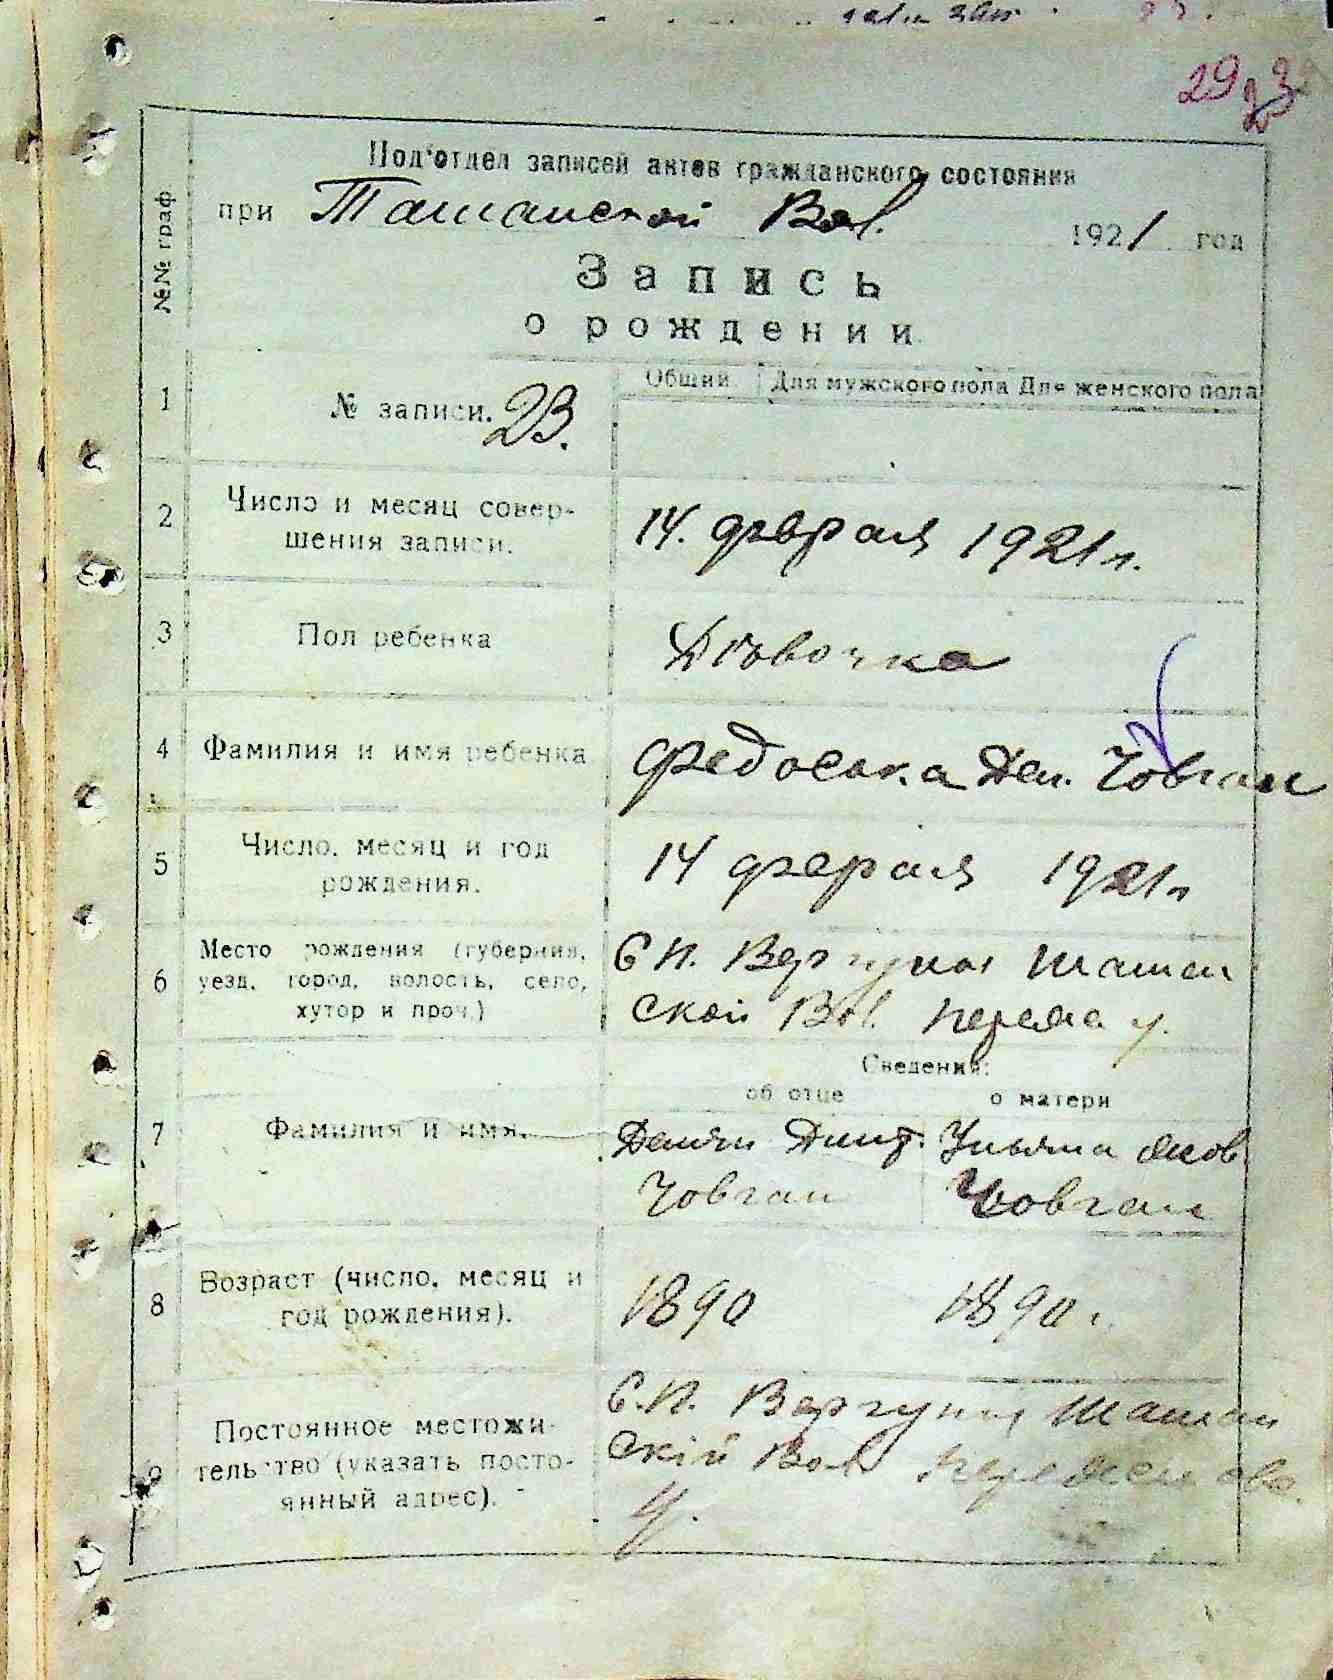 29
23
Под'отдел записей актов гражданского состояния
№№ граф
при Ташанской Вол. 1921 год
Запись
о рождении
Общий Для мужского пола Для женского пола
1 № записи. 23.
2 Число и месяц совер-
шения записи. 14. февраля 1921 г.
3 Пол ребенка Дѣвочка
4 Фамилия и имя ребенка Федоська Дем. Човган
5 Число, месяц и год
рождения. 14 февраля 1921 г
6 Место рождения (губерния,
уезд, город, волость, село,
хутор и проч.)
С П. Вергуны Ташан
ской Вол. Переяс у.
Сведения:
об отце о матери
7 Фамилия и имя.
Демян Дмит. Човган
Ульяна Яков Човган
8 Возраст (число, месяц и
год рождения). 1890 1890 г.
9 Постоянное местожи-
тельство (указать посто-
янный адрес).
С.П. Вергуны Ташан
ской Вол
у.